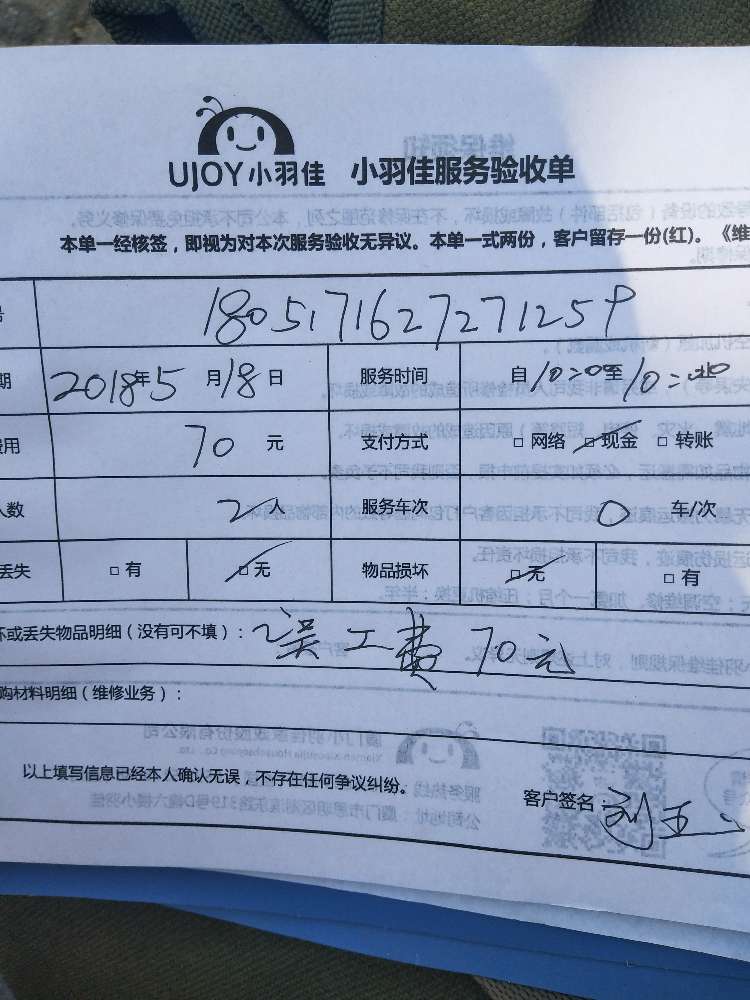 UJOY小羽佳 小羽佳服务验收单
本单一经核签，即视为对本次服务验收无异议。本单一式两份，客户留存一份(红)。《维
号 1805171627271259
期 2018年5月18日 服务时间 自10:0至10:
费用 70元 支付方式 □网络 ☑现金 □转账
人数 2人 服务车次 0 车/次
丢失 □有 ☑无 物品损坏 ☑无 □有
坏或丢失物品明细（没有可不填）：误工费70元
购材料明细（维修业务）：
以上填写信息已经本人确认无误，不存在任何争议纠纷。
客户签名：